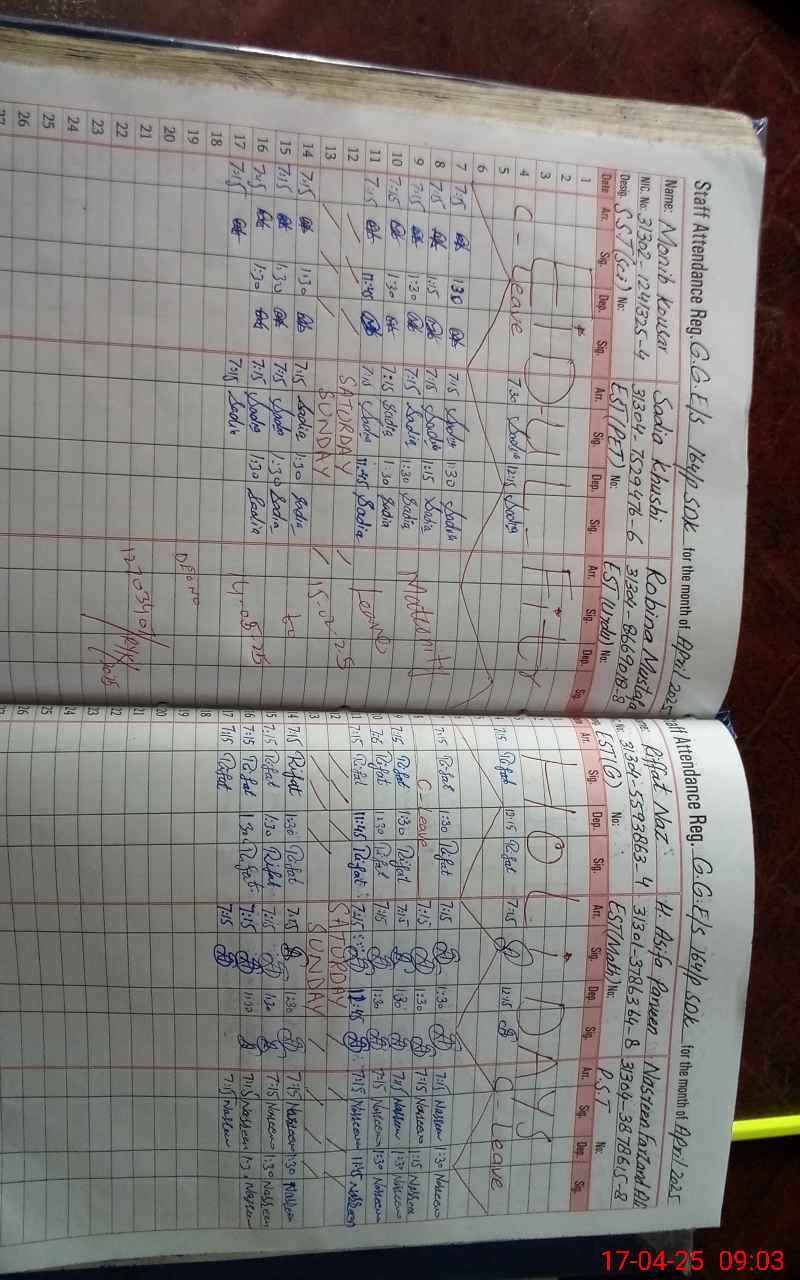 Staff Attendance Reg. G.G.E/s 164/p SDK for the month of April 2025
Name: Monib Kousar Sadia Khushi Robina Mustafa
NIC. No: 31302-1241325-4 31304-7529476-6 31304-8669018-8
Desig: S.S.T(Sci) No: EST(PET) No: EST(Urdu) No:
Date Arr. Sig. Dep. Sig. Arr. Sig. Dep. Sig. Arr. Sig. Dep. Sig.
1
2 E-i-D-U-L-Fitr
3
4 C-Leave 7:30 Sadia 12:15 Sadia
5
6
7 7:15 1:30 7:15 Sadia 1:30 Sadia
8 7:15 1:15 7:15 Sadia 1:15 Sadia Maternity
9 7:15 1:30 7:15 Sadia 1:30 Sadia
10 7:15 1:30 7:15 Sadia 1:30 Sadia Leave
11 7:15 11:45 7:15 Sadia 11:45 Sadia
12 SATURDAY 15-02-25
13 SUNDAY
14 7:15 1:30 7:15 Sadia 1:30 Sadia to
15 7:15 1:30 7:15 Sadia 1:30 Sadia
16 7:15 1:30 7:15 Sadia 1:30 Sadia 14-05-25
17 7:15 7:15 Sadia
18
19
20
21
22
23
24
25
26
27
Staff Attendance Reg. G.G.E/s 164/p SDK for the month of April 2025
Riffat Naz H. Asifa Parveen Nasreen Farzand Ali
31304-5593863-4 31301-3786364-8 31304-3878615-8
EST(G) No: EST(Math) No: P.S.T No:
Arr. Sig. Dep. Sig. Arr. Sig. Dep. Sig. Arr. Sig. Dep. Sig.
HOLiDAYS
7:15 Riffat 12:15 Riffat 7:15 12:15 C-Leave
7:15 Riffat 1:30 Riffat 7:15 1:30 7:15 Nasreen 1:30 Nasreen
8 C-Leave 7:15 1:30 7:15 Nasreen 1:15 Nasreen
9 7:15 Riffat 1:30 Riffat 7:15 1:30 7:15 Nasreen 1:30 Nasreen
10 7:15 Riffat 1:30 Riffat 7:15 1:30 7:15 Nasreen 1:30 Nasreen
11 7:15 Riffat 11:45 Riffat 7:15 12:45 7:15 Nasreen 11:45 Nasreen
12 SATURDAY
13 SUNDAY
14 7:15 Riffat 1:30 Riffat 7:15 1:30 7:15 Nasreen 1:30 Nasreen
15 7:15 Riffat 1:30 Riffat 7:15 1:30 7:15 Nasreen 1:30 Nasreen
16 7:15 Riffat 1:30 Riffat 7:15 1:30 7:15 Nasreen Nasreen
17 7:15 Riffat 7:15 7:15 Nasreen
18
19
20
21
22
23
24
25
26
17-04-25 09:03